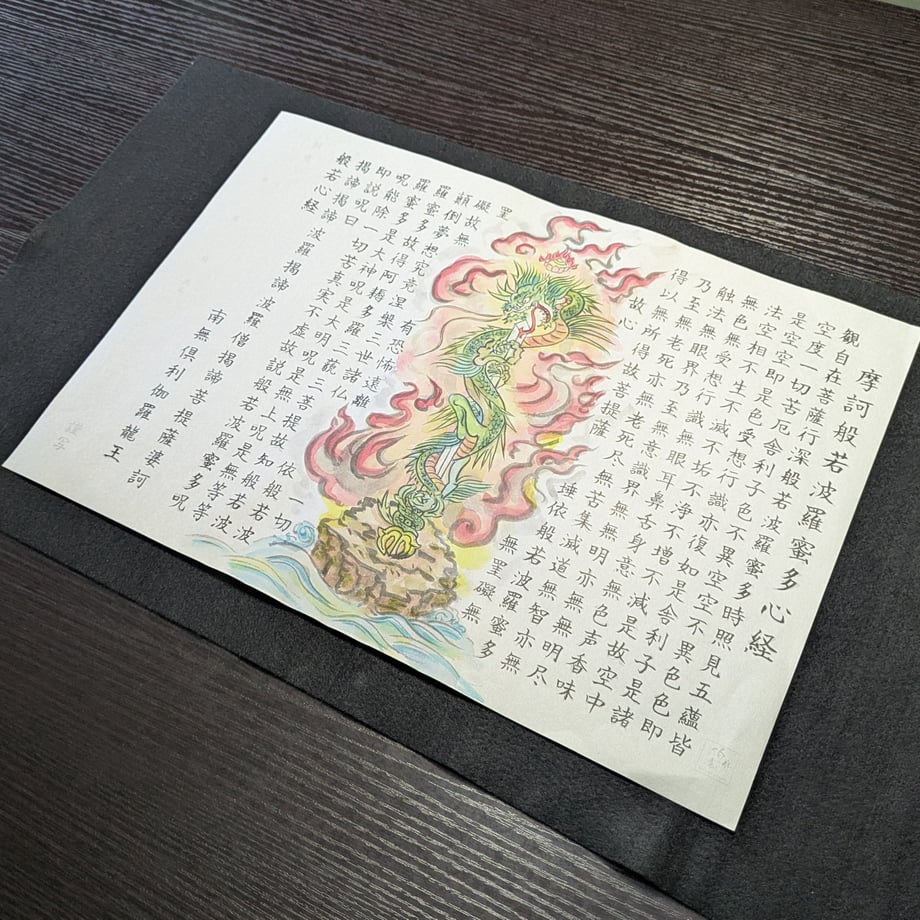 摩訶般若波羅蜜多心経
観自在菩薩行深般若波羅蜜多時照見五蘊皆
空度一切苦厄舎利子色不異空空不異色色即
是空空即是色受想行識亦復如是舎利子是諸
法空相不生不滅不垢不浄不増不減是故空中
無色無受想行識無眼耳鼻舌身意無色声香味
触法無眼界乃至無意識界無無明亦無無明尽
乃至無老死亦無老死尽無苦集滅道無智亦無
得以無所得故菩提薩埵依般若波羅蜜多
故心無罣礙無
罣
礙故無有恐怖遠離一切
顛倒夢想究竟涅槃三世諸仏依般若波
羅蜜多故得阿耨多羅三藐三菩提故知般若波
羅蜜多是大神呪是大明呪是無上呪是無等等
呪能除一切苦真実不虚故説般若波羅蜜多呪
即説呪曰
揭諦揭諦波羅揭諦波羅僧揭諦菩提薩婆訶
般若心経
南無倶利伽羅龍王